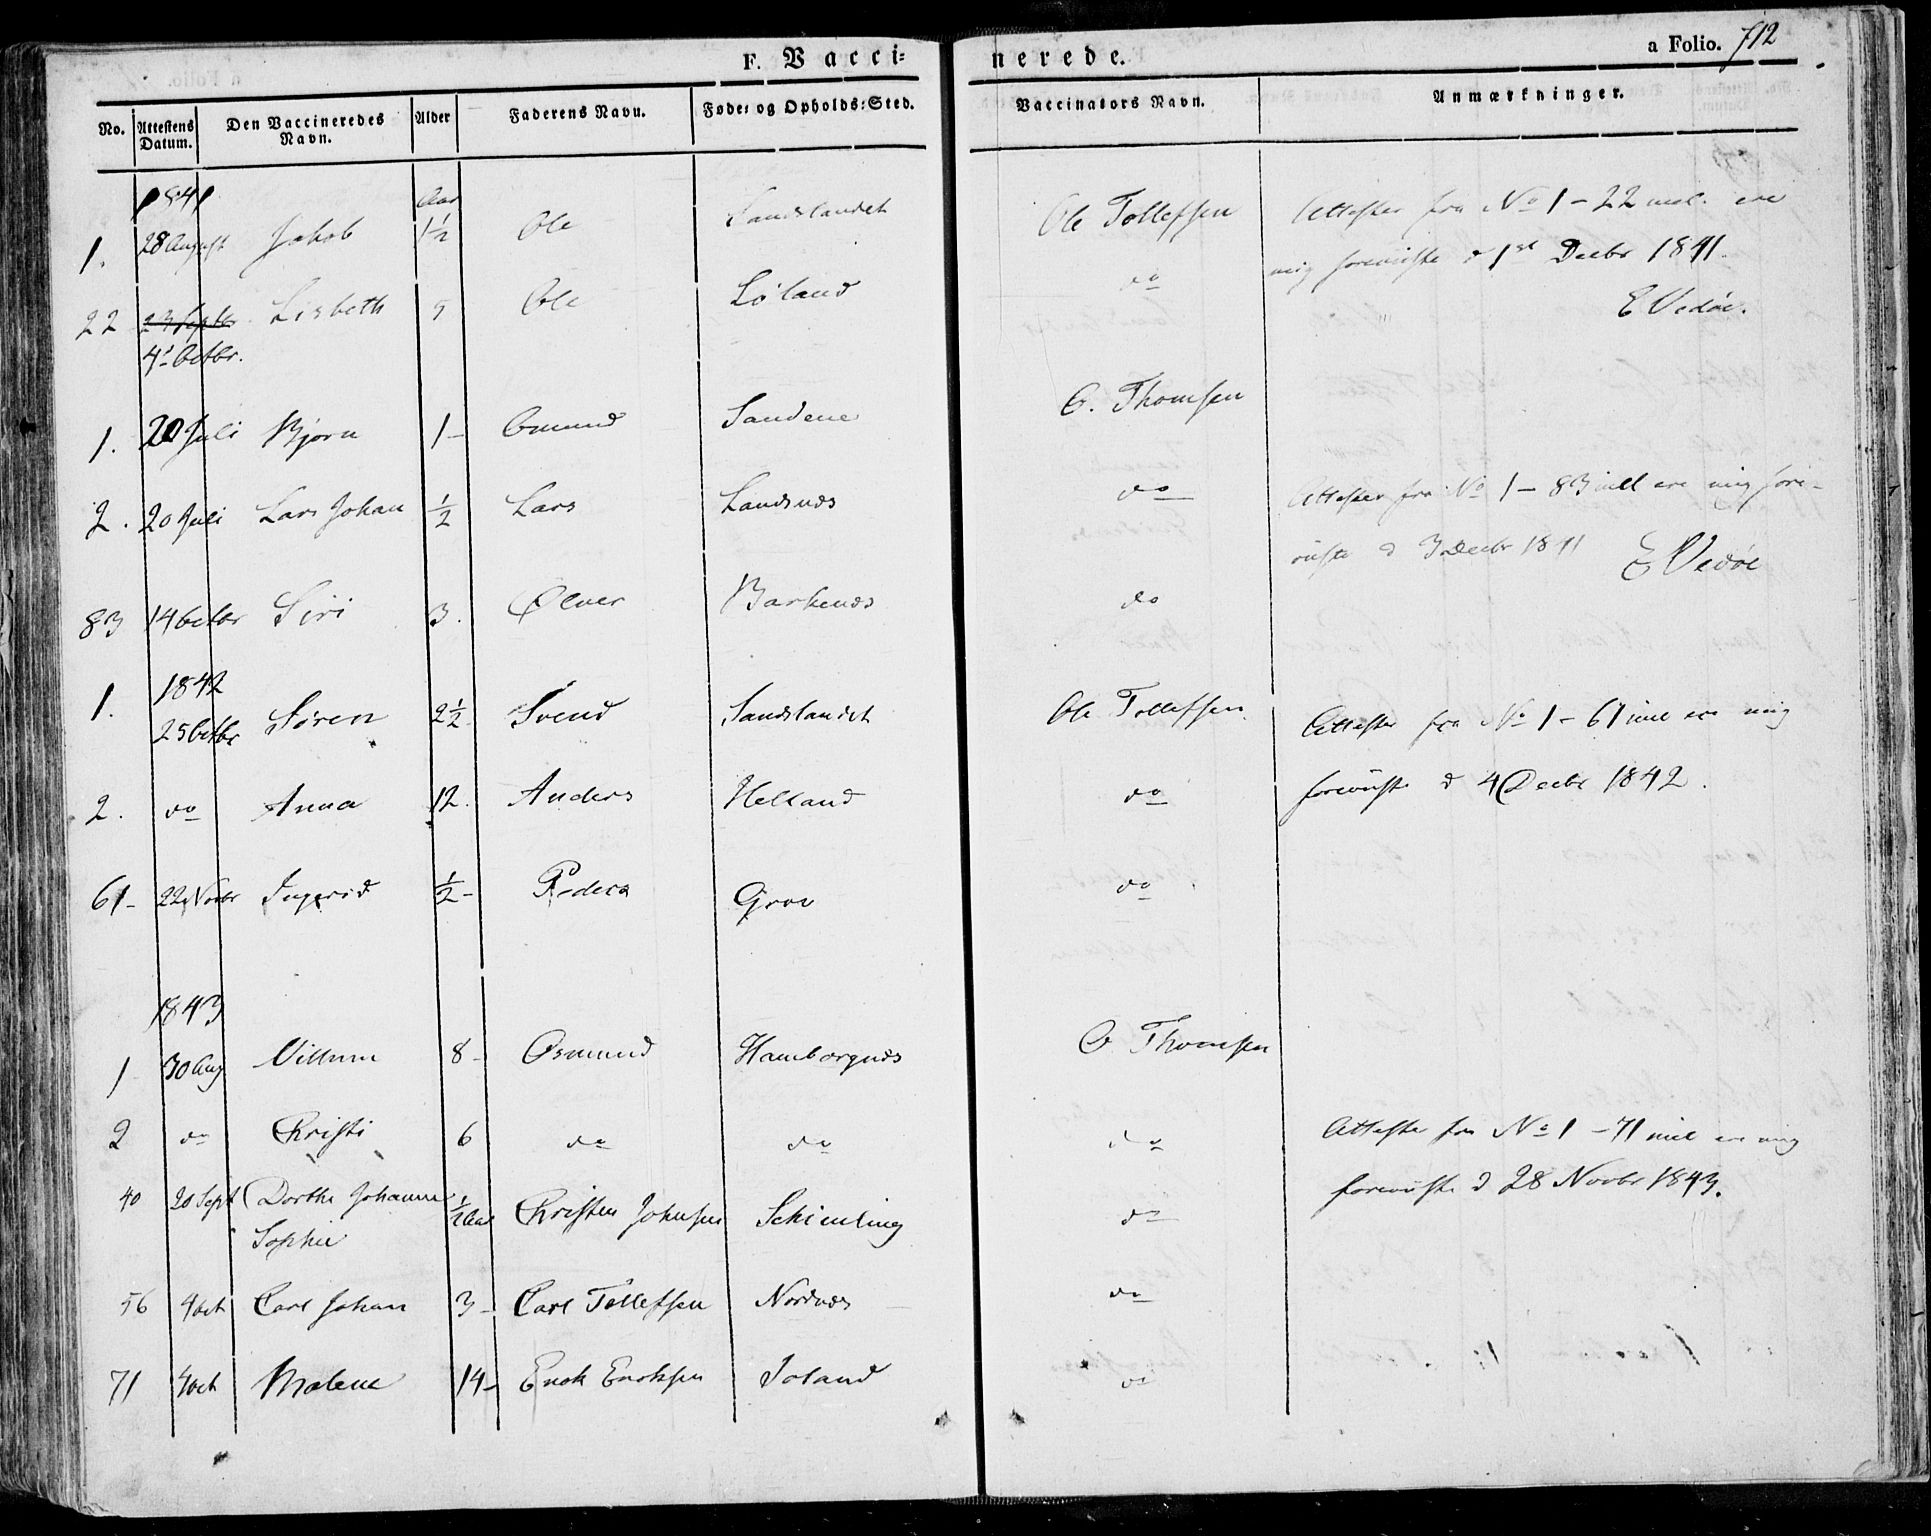 F. Vacci= nerede. a Folio. 712
No. Attestens Datum. Den Vaccineredes Navn. Alder Faderens Navn. Føde: og Opholds:Sted. Vaccinators Navn. Anmærkninger.
1841 Aar
1. 28 August Jakob 1½ Ole Sandslandet Ole Tollefsen Attester fra No 1 - 22 incl. ere
mig foreviiste d 1st Decbr 1841.
22 23 Septbr Lisbeth 5 Ole Løland do E Vedøe.
4' Octbr.
1. 20 Juli Bjørn 1 - Omund Sandene O. Thomsen
2. 20 Juli Lars Johan ½ Lars Landsnes do Attester fra No 1 - 83 incl ere mig fore-
viiste d 3 Decbr 1841 E Vedøe
83 14 Octbr Siri 3. Ølver Barkenes do
1842
1. 25 Octbr Søren 2½ Svend Sandslandet Ole Tollefsen. Attester fra No 1 - 61 incl ere mig
foreviiste d 4 Decbr 1842.
2. do Anna 12. Anders Helland do
61- 22 Novbr Ingerid ½ - Peder Grov do
1843
1 30 Aug Villum 8 - Osmund Hamborgnes O Thomsen
2 do Christi 6 do do do Attester fra No 1 - 71 incl ere mig
foreviiste d 28 Novbr 1843.
40 20 Sept Dorthe Johanne ½ Aar Christen Johnsen Schimling do
Sophie
56 4 Oct Carl Johan 3 - Carl Tollefsen Nordnes do
71 4 Oct Malene 14 - Enok Enoksen Joland do